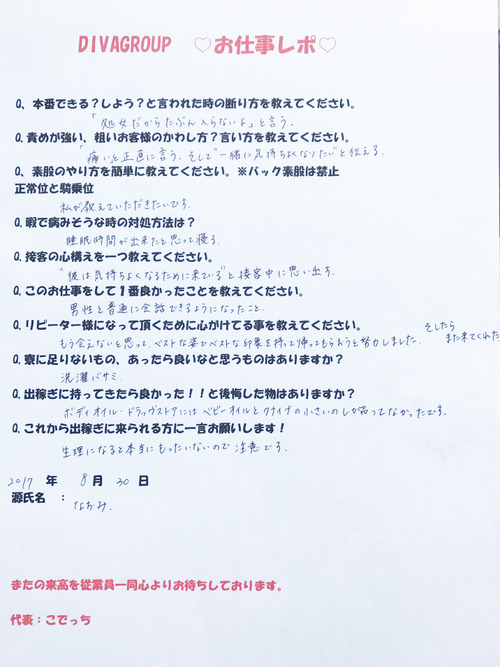 DIVAGROUP ♡お仕事レポ♡
Q、本番できる？しよう？と言われた時の断り方を教えてください。
「処女だからたぶん入らないよ」と言う。
Q.責めが強い、粗いお客様のかわし方？言い方を教えてください。
「痛いと正直に言う、そして"一緒に気持ちよくなりたい"と伝える。
Q、素股のやり方を簡単に教えてください。※バック素股は禁止
正常位と騎乗位
私が教えていただきたいです。
Q.暇で病みそうな時の対処方法は？
睡眠時間が出来たと思って寝る。
Q.接客の心構えを一つ教えてください。
"彼は気持ちよくなるために来ている"と接客中に思い出す。
Q.このお仕事をして１番良かったことを教えてください。
男性と普通に会話できるようになったこと。
Q.リピーター様になって頂くために心がけてる事を教えてください。
もう会えないと思って、ベストな姿でベストな印象を持って帰ってもらおうと努力しました。そしたら
また来てくれた
Q.寮に足りないもの、あったら良いなと思うものはありますか？
洗濯バサミ
Q.出稼ぎに持ってきたら良かった！！と後悔した物はありますか？
ボディオイル・ドラッグストアにはベビーオイルとクナイプの小さいのしか売ってなかったです。
Q.これから出稼ぎに来られる方に一言お願いします！
生理になると本当にもったいないので注意です。
2017 年 8 月 30 日
源氏名 ：
なおみ.
またの来高を従業員一同心よりお待ちしております。
代表：こでっち